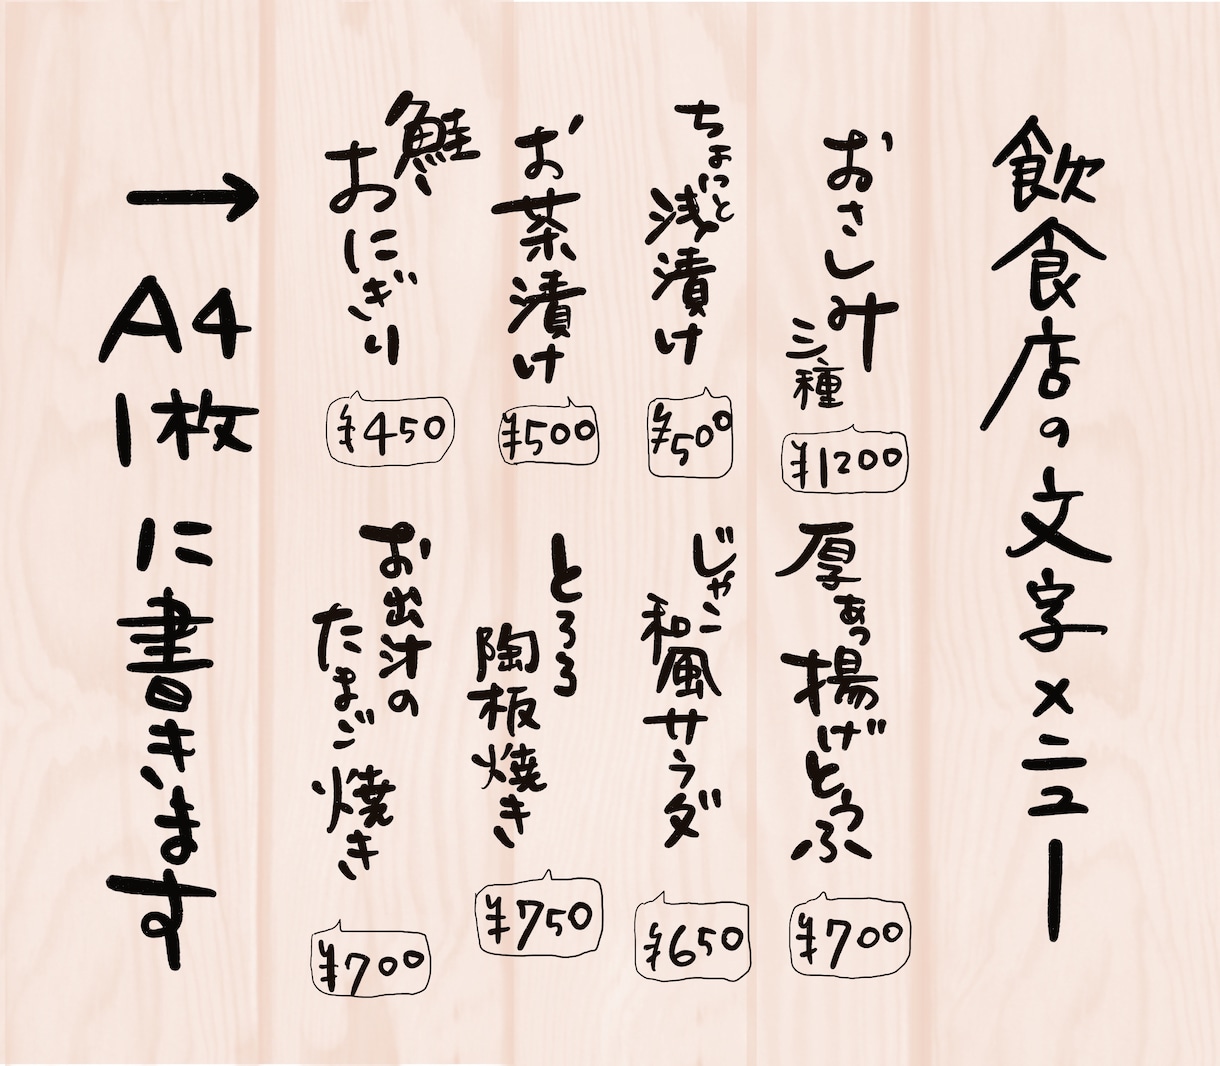 飲食店の文字メニュー
おさしみ
三種
¥1200
ちょっと
浅漬け
¥500
お茶漬け
¥500
鮭
おにぎり
¥450
厚あつ揚げとうふ
¥700
じゃこ
和風サラダ
¥650
とろろ
陶板焼き
¥750
お出汁の
たまご焼き
¥700
→
A4
1枚
に書きます